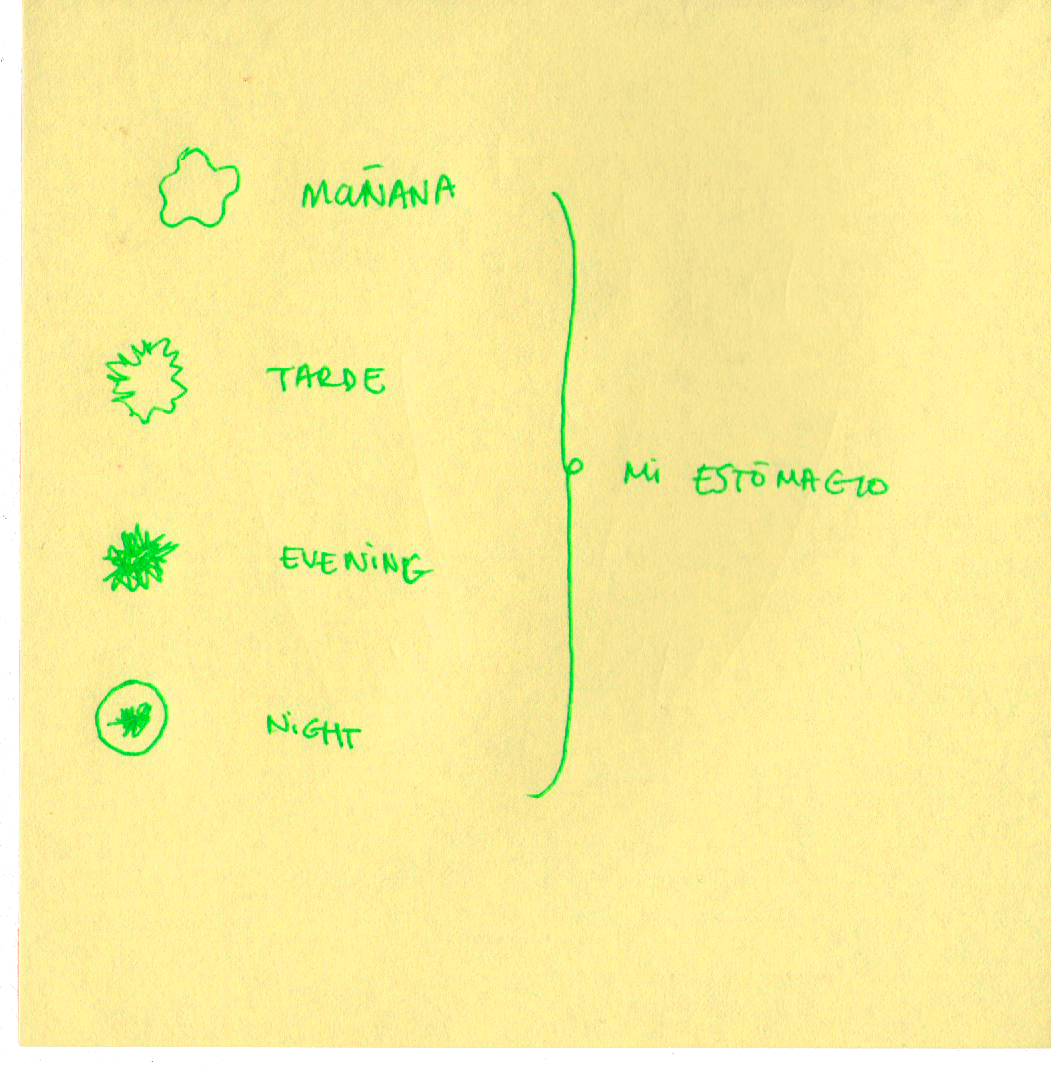 MAÑANA
TARDE
EVENING
NIGHT
MI ESTÓMAGO